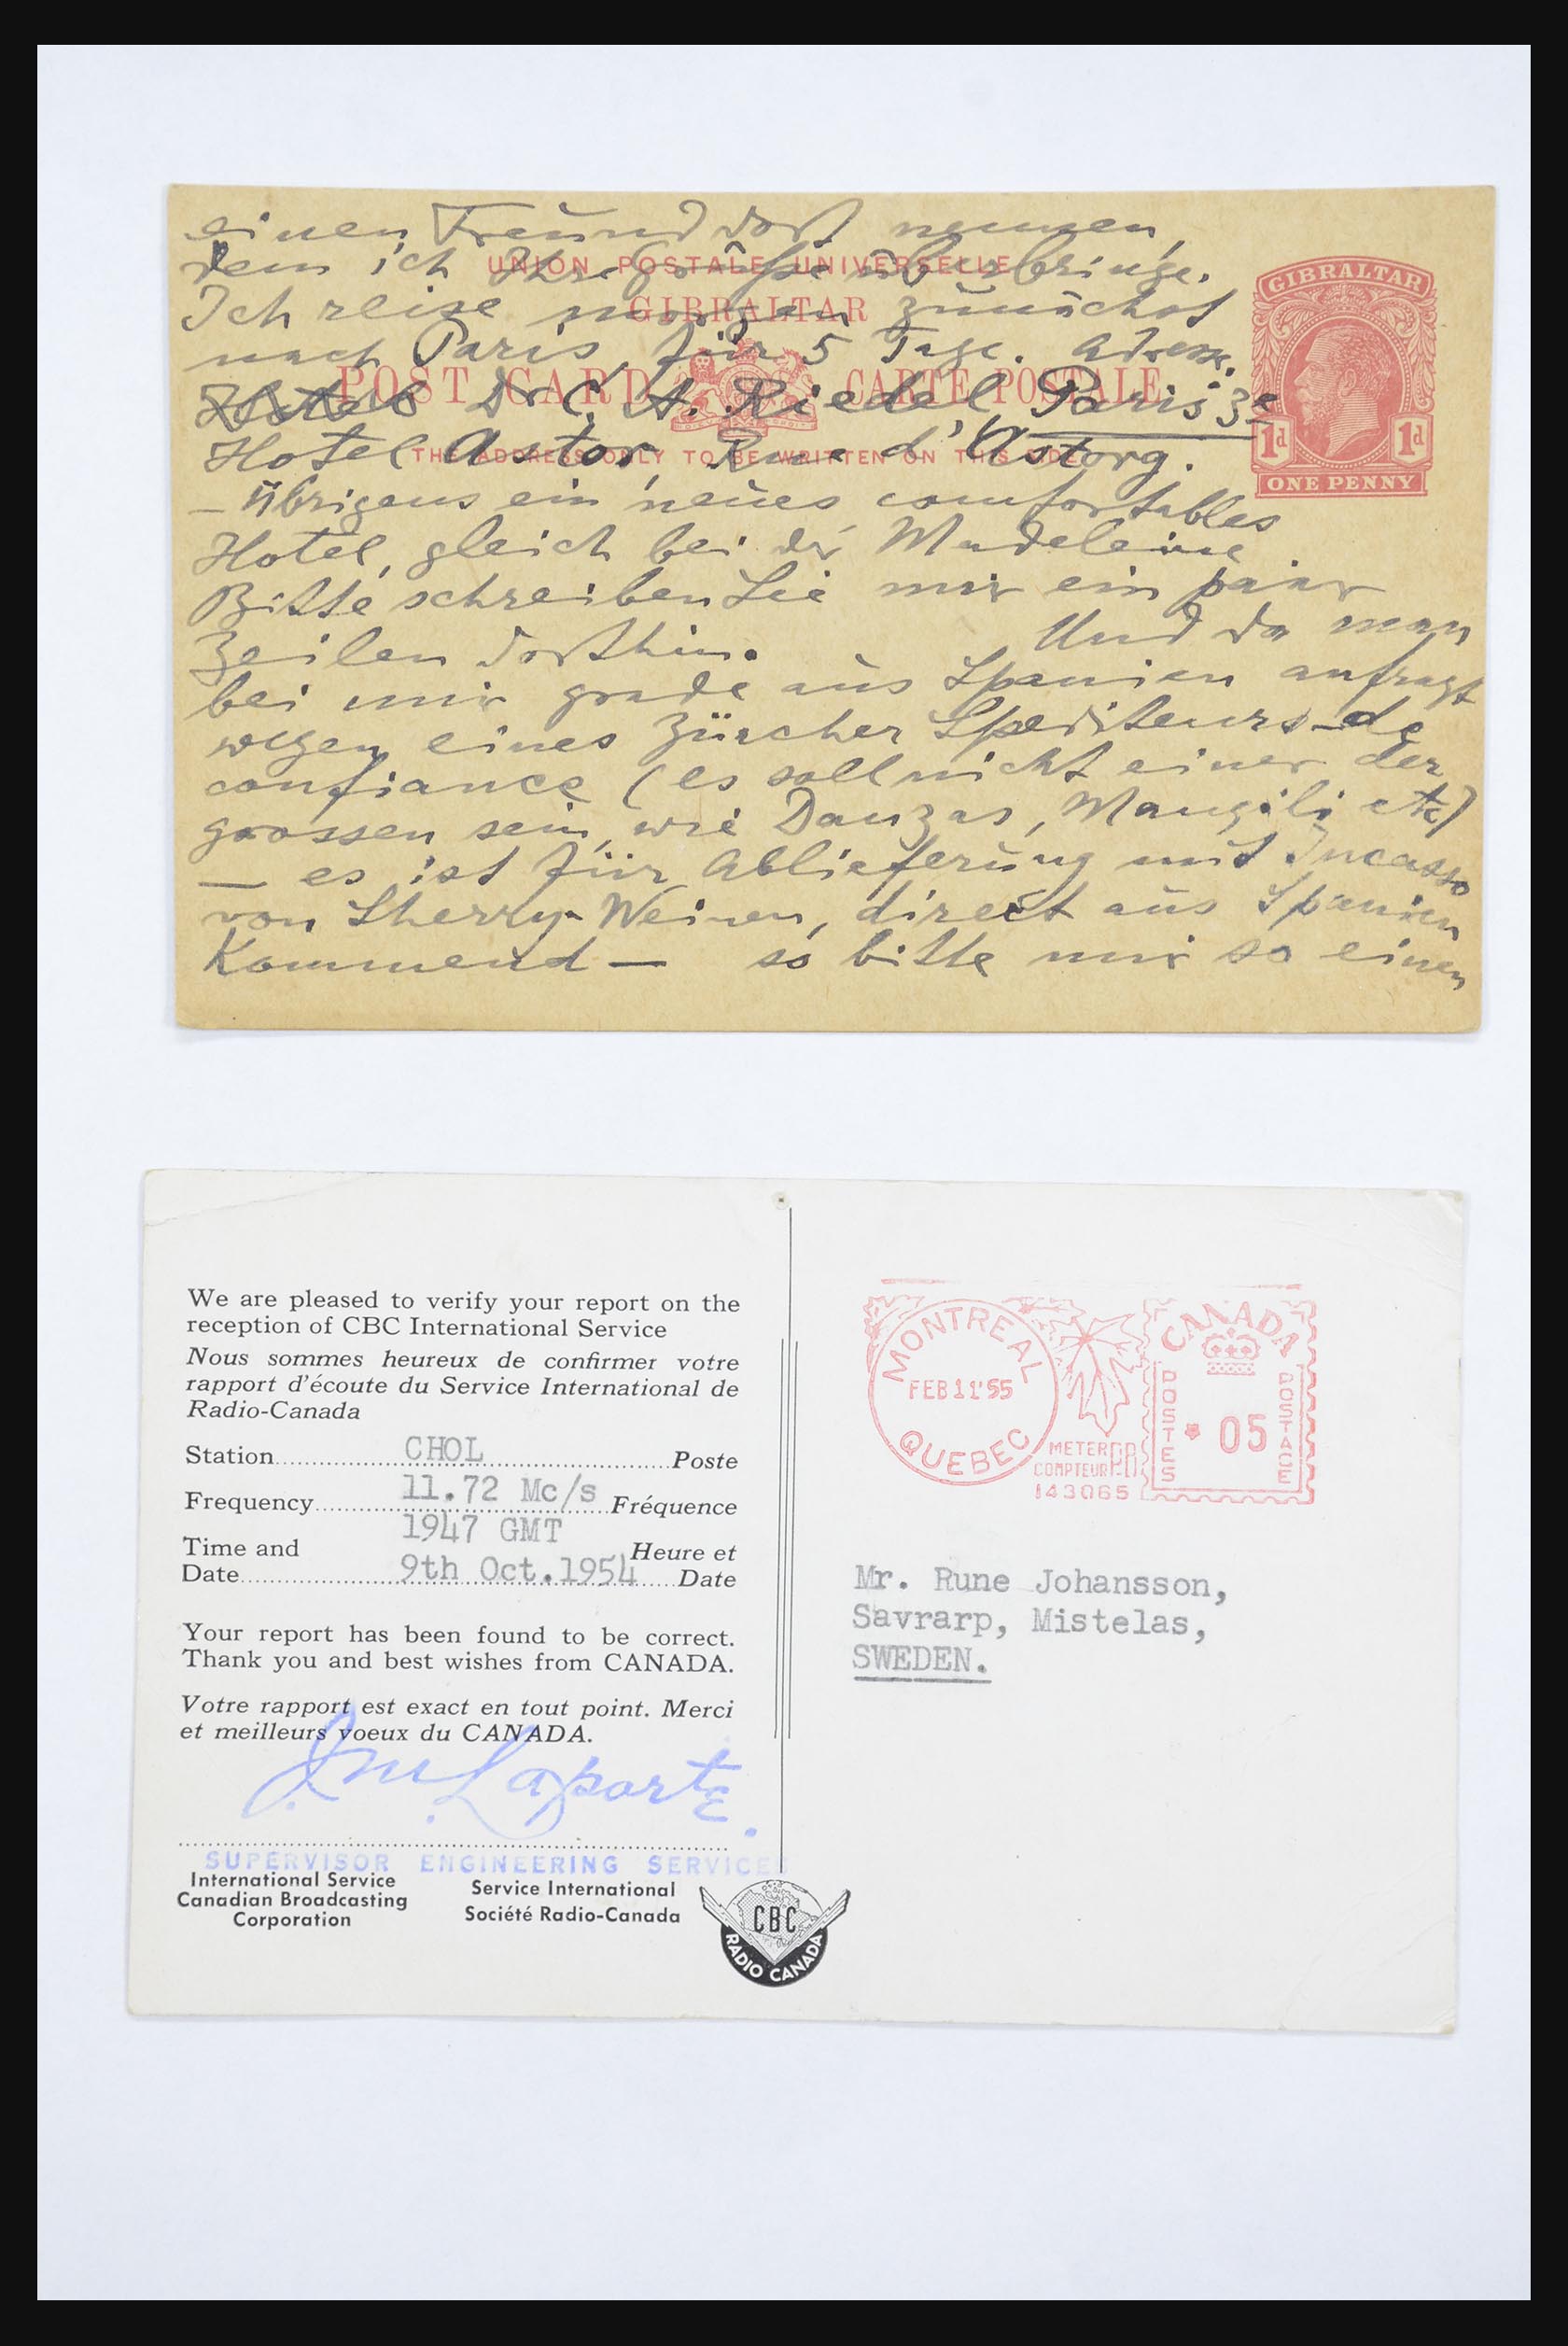 einen Freund dort nennen,
dem ich Ihre Grüsse überbringe.
UNION POSTALE UNIVERSELLE
Ich reise morgen zunächst
GIBRALTAR
nach Paris, für 5 Tage. Adresse.
POST CARD CARTE POSTALE
Hotel Dr C. A. Riedel Paris 3e
Hotel Astor Rue d'Astorg.
THE ADDRESS ONLY TO BE WRITTEN ON THIS SIDE
GIBRALTAR
1d 1d
ONE PENNY
— übrigens ein neues comfortables
Hotel, gleich bei der Madeleine.
Bitte schreiben Sie mir ein paar
Zeilen dorthin. Und da man
bei mir grade aus Spanien anfragt
wegen eines Zürcher Spediteurs de
confiance (es soll nicht einer der
grossen sein, wie Danzas, Mangili etc)
— es ist für Ablieferung mit Incasso
von Sherry-Weinen, direct aus Spanien
Kommend — so bitte mir so einen
We are pleased to verify your report on the
reception of CBC International Service
Nous sommes heureux de confirmer votre
rapport d'écoute du Service International de
Radio-Canada
Station CHOL Poste
Frequency 11.72 Mc/s Fréquence
1947 GMT
Time and Heure et
Date 9th Oct.1954 Date
Your report has been found to be correct.
Thank you and best wishes from CANADA.
Votre rapport est exact en tout point. Merci
et meilleurs voeux du CANADA.
J.M. Laporte.
SUPERVISOR ENGINEERING SERVICES
International Service
Canadian Broadcasting
Corporation
Service International
Société Radio-Canada
CBC
RADIO CANADA
MONTREAL
FEB 11'55
QUEBEC
METER
COMPTEUR
PB
143065
CANADA
POSTES
05
POSTAGE
Mr. Rune Johansson,
Savrarp, Mistelas,
SWEDEN.